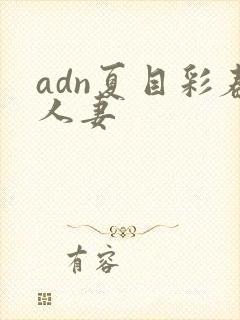 adn夏目彩春
人妻
有容